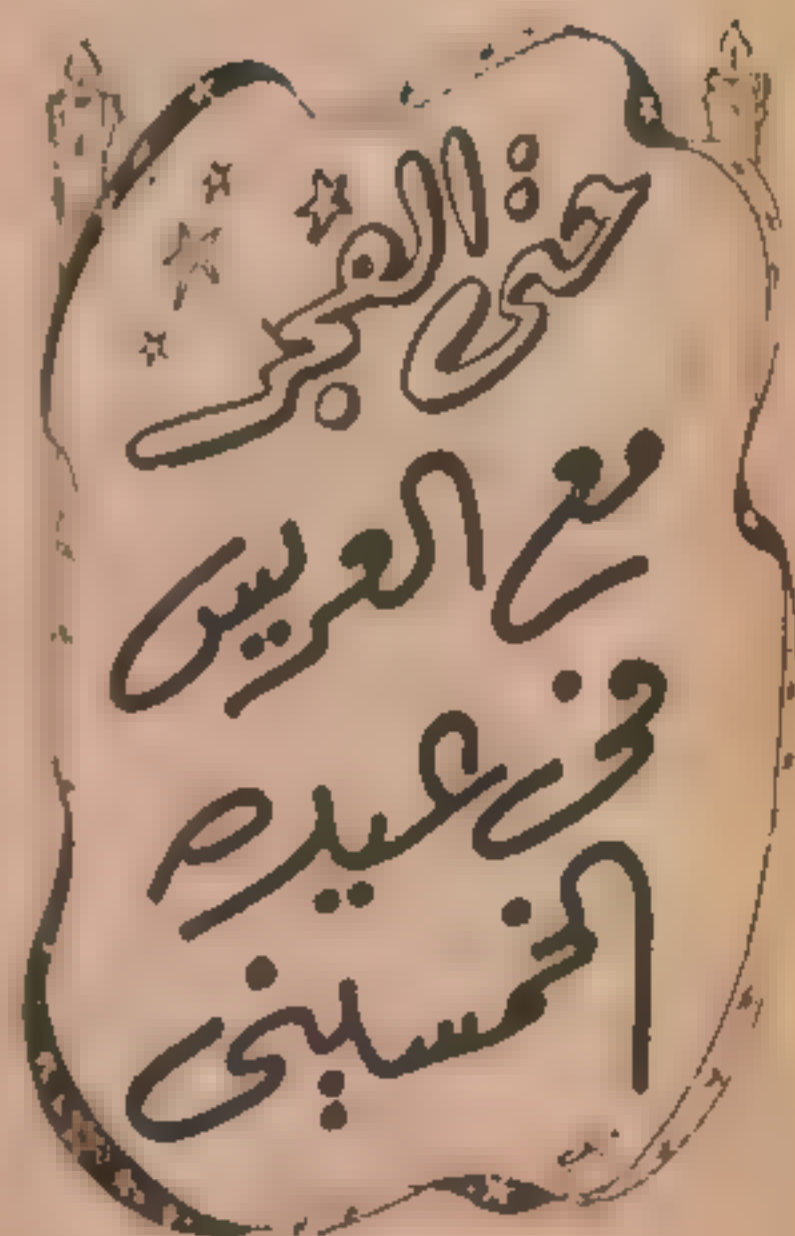 حتى الفجر
مع العريس
فى عيده
الخمسينى